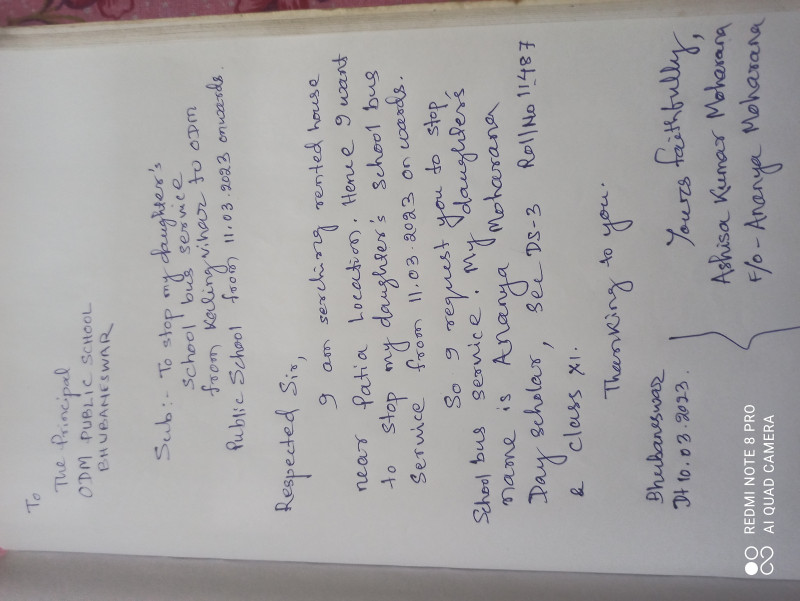 To
The Principal
ODM PUBLIC SCHOOL
BHUBANESWAR
Sub:- To stop my daughter's
school bus service
from Kalingvihar to ODM
Public School from 11.03.2023 onwards.
Respected Sir,
I am serching rented house
near Patia Location. Hence I want
to stop my daughter's school bus
service from 11.03.2023 onwards.
So I request you to stop
School bus service. My daughter's
name is Ananya Moharana
Day scholar, Sec DS-3 Roll No 11487
& Class XI.
Thanking to you.
Bhubaneswar
Dt 10.03.2023.
Yours faithfully,
Ashisa Kumar Moharana
F/O- Ananya Moharana
REDMI NOTE 8 PRO
AI QUAD CAMERA